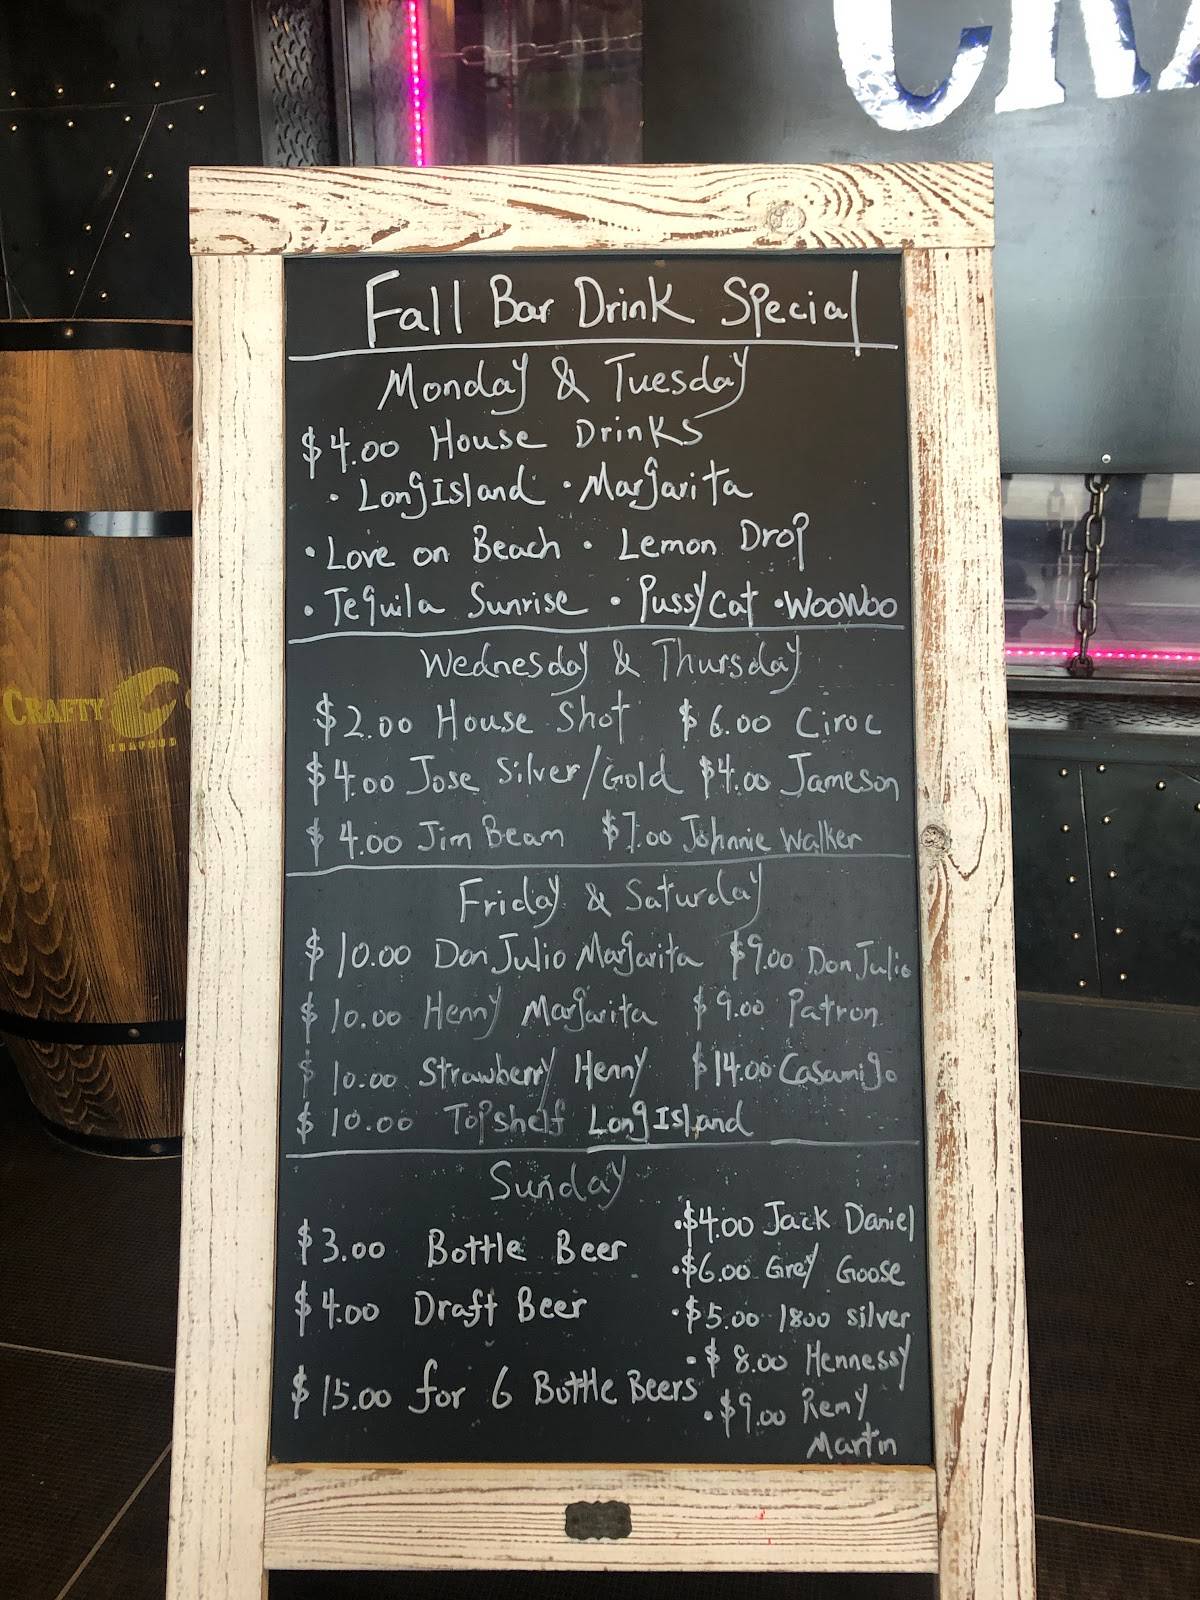 Fall Bar Drink Special
Monday & Tuesday
$4.00 House Drinks
• Long Island • Margarita
• Love on Beach • Lemon Drop
• Tequila Sunrise • Pussy Cat • WooWoo
Wednesday & Thursday
$2.00 House Shot $6.00 Ciroc
$4.00 Jose Silver/Gold $4.00 Jameson
$4.00 Jim Beam $7.00 Johnnie Walker
Friday & Saturday
$10.00 Don Julio Margarita $9.00 Don Julio
$10.00 Henny Margarita $9.00 Patron
$10.00 Strawberry Henny $14.00 Casamigo
$10.00 Topshelf Long Island
Sunday
$3.00 Bottle Beer
$4.00 Draft Beer
$15.00 for 6 Bottle Beers
• $4.00 Jack Daniel
• $6.00 Grey Goose
• $5.00 1800 silver
• $8.00 Hennessy
• $9.00 Remy
Martin
CRAFTY
SEAFOOD